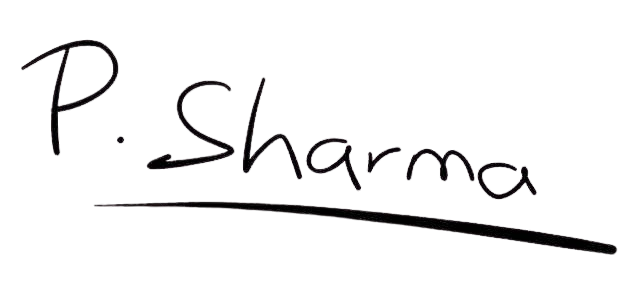 P. Sharma